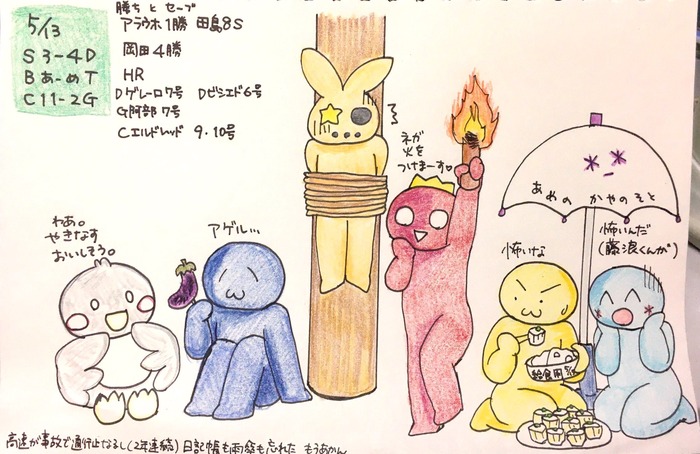 5/13
S3-4D
Bあ-めT
C11-2G
勝ちとセーブ
アラウホ1勝 田島8S
岡田4勝
HR
Dゲレーロ7号 Dビシエド6号
G阿部7号
Cエルドレッド 9・10号
ネガ
火を
つけまーす。
わあ。
やきなす
おいしそう。
アゲル…
あめの かやのそと
怖いな
怖いんだ
(藤浪くんが)
給食用
高速が事故で通行止なるし(2年連続)日記帳も雨傘も忘れた もうあかん